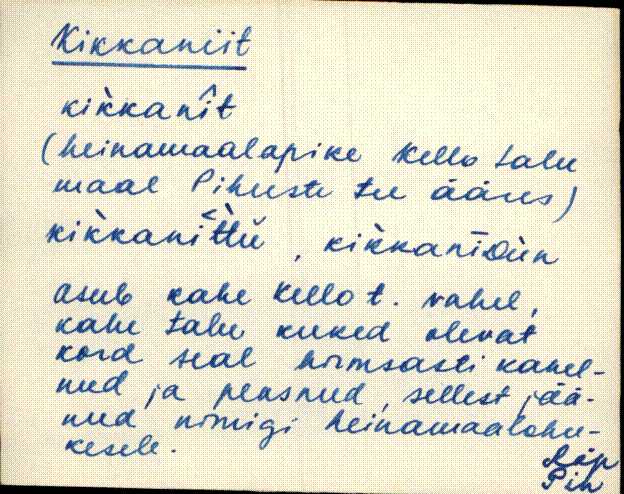 Kikkaniit
kik̀kanî̄t
(heinamaalapike Kello talu
maal Pihuste tee ääres)
kik̀kanit̀tü, kik̀kanīᴅün
asub kahe Kello t. vahel,
kahe talu kuked olevat
kord seal hirmsasti kakel-
nud ja peksnud, sellest jää-
nud nimigi heinamaalohu-
kesele.